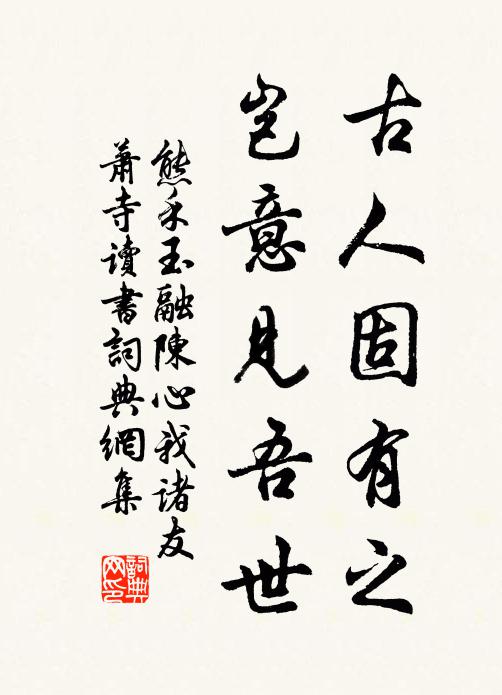 古人固有之
豈意見吾世
熊禾玉融陳心我諸友
蕭寺讀書詞典網集
詞典網印